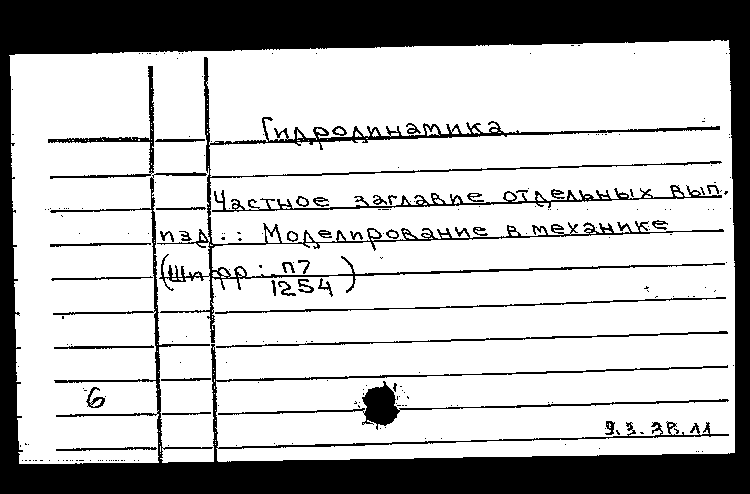 Гидродинамика
Частное заглавие отдельных вып.
изд.: Моделирование в механике
(Шифр: п7
1254)
6